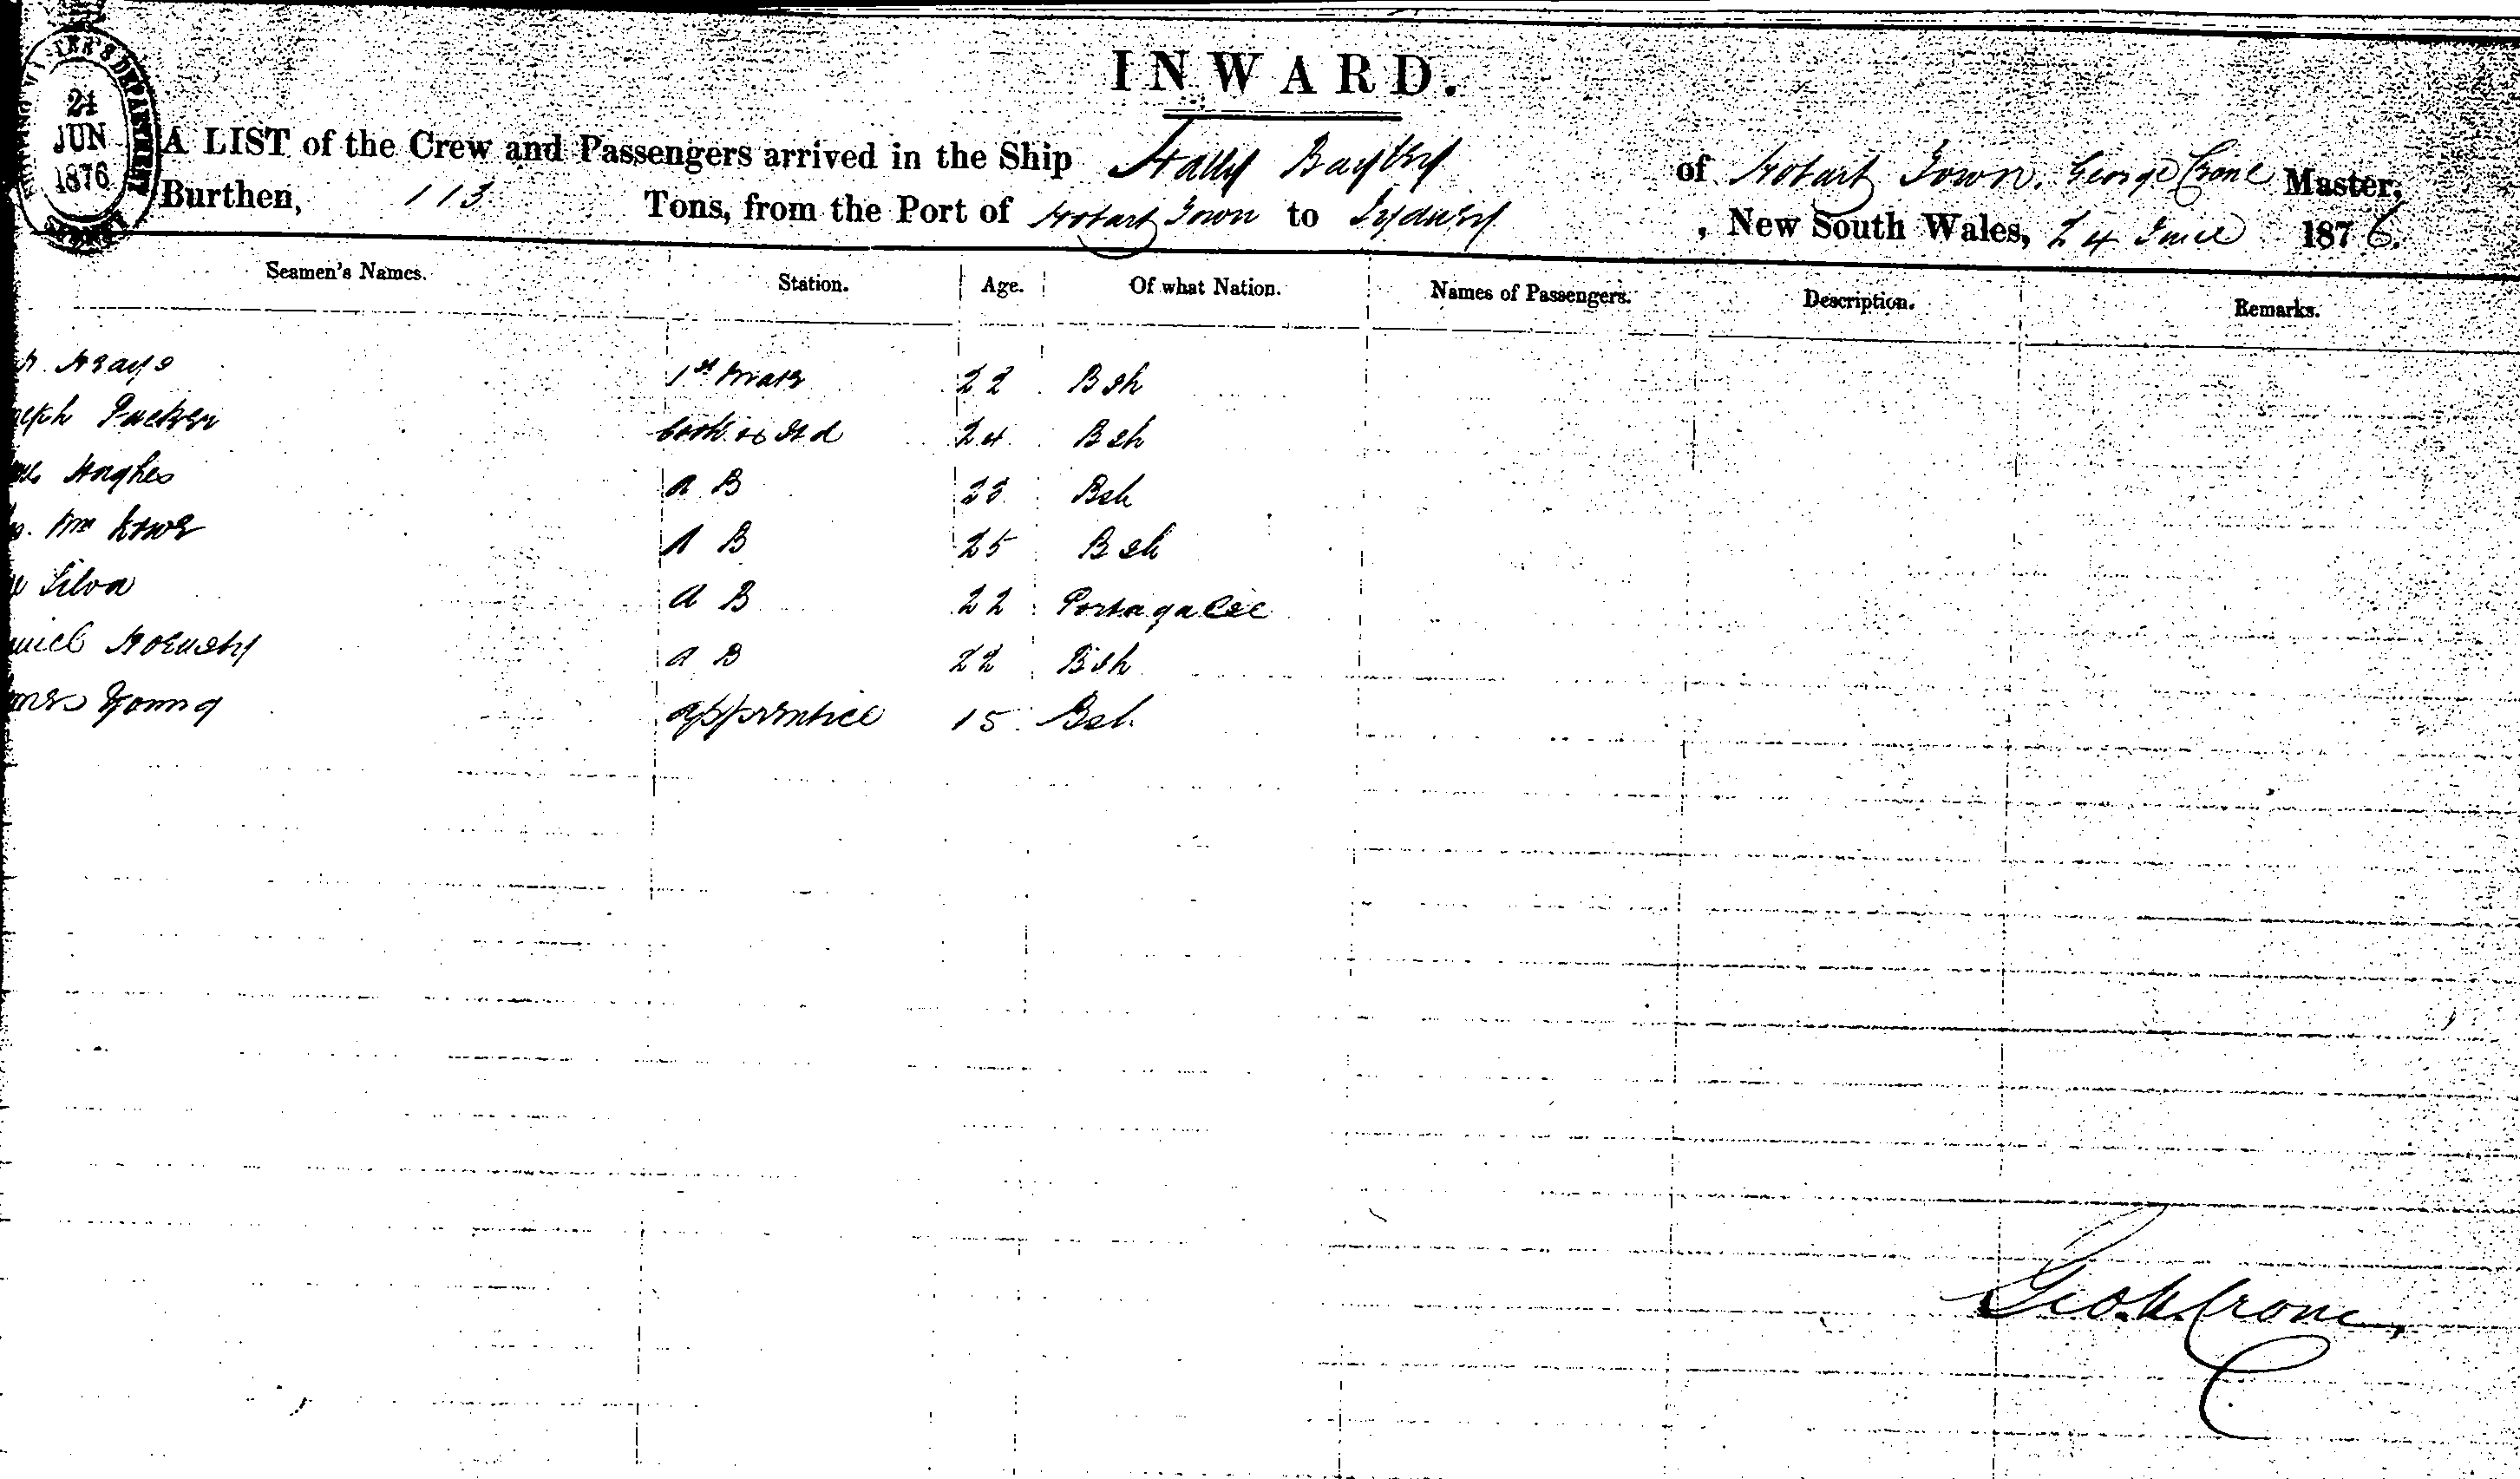 INWARD.
24
JUN
1876
A LIST of the Crew and Passengers arrived in the Ship Hally Bayley of Hobart Town. George Crone Master,
Burthen, 113 Tons, from the Port of Hobart Town to Sydney, New South Wales, 24 June 1876.
Seamen's Names. Station. Age. Of what Nation. Names of Passengers. Description. Remarks.
1st Mate 22 Bsh
eph Tucker Cook & Std 24 Bsh
Hughes A B 23 Bsh
A B 25 Bsh
Silva A B 22 Portagalee
niel Hornsby A B 22 Bsh
mes Young apprentice 15 Bsh
Geo. Crone